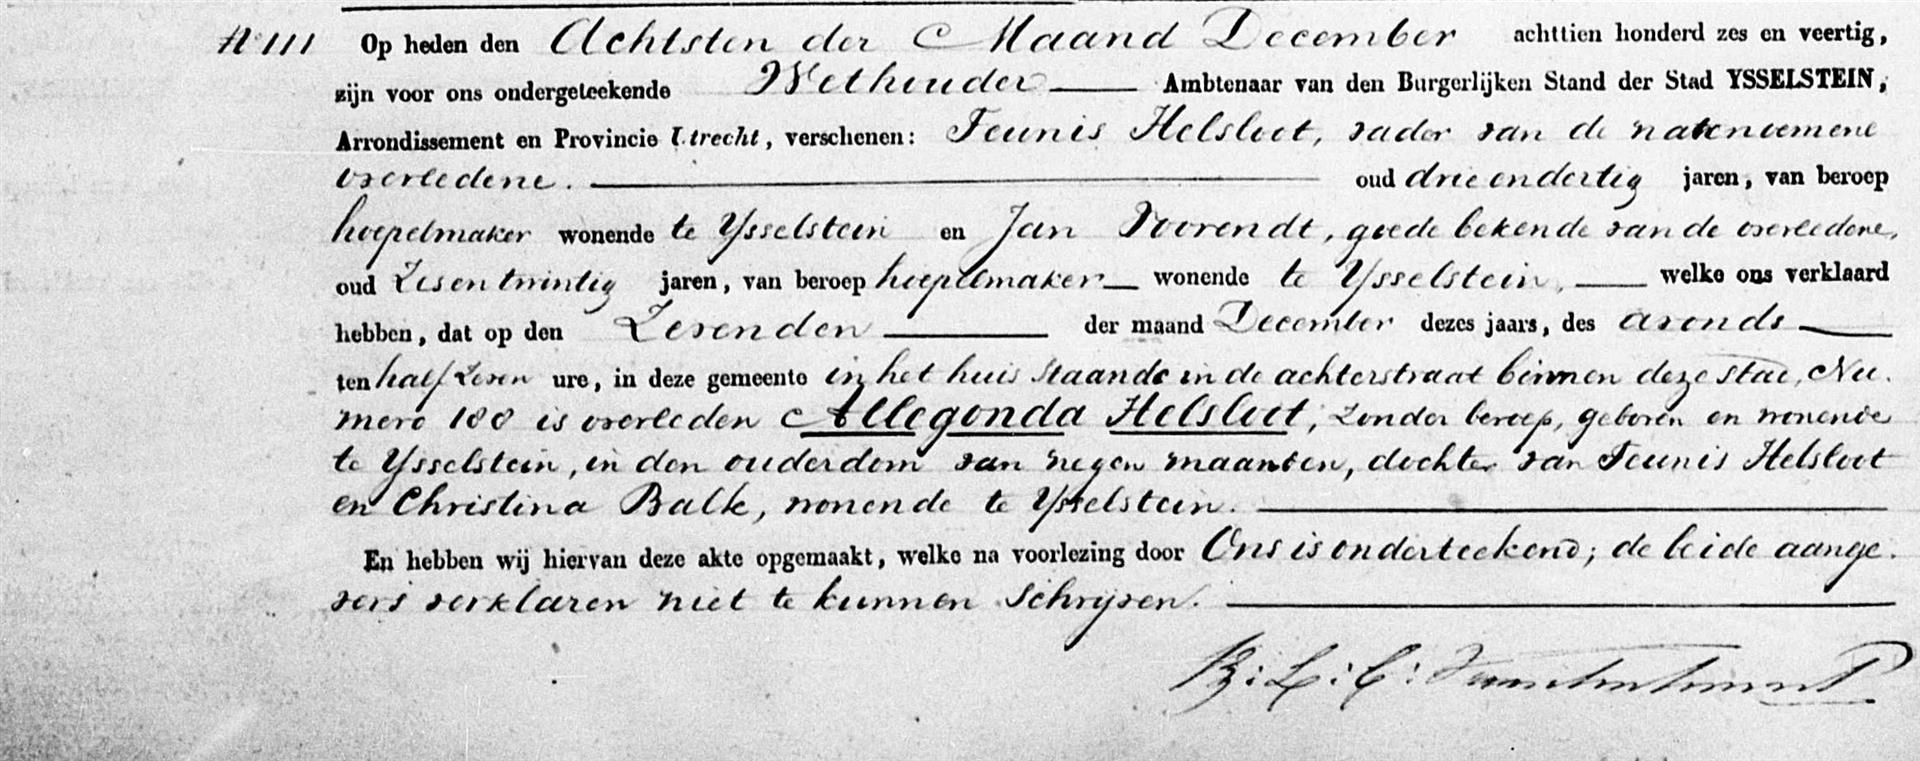 No 111 Op heden den Achtsten der Maand December achttien honderd zes en veertig,
zijn voor ons ondergeteekende Wethouder Ambtenaar van den Burgerlijken Stand der Stad YSSELSTEIN,
Arrondissement en Provincie Utrecht, verschenen: Teunis Helsloot, vader van de natenoemene
overledene. oud drie en dertig jaren, van beroep
hoepelmaker wonende te Ysselstein en Jan Voorendt, goede bekende van de overledene,
oud Zesentwintig jaren, van beroep hoepelmaker wonende te Ysselstein, welke ons verklaard
hebben, dat op den Zevenden der maand December dezes jaars, des avonds
ten half Zeven ure, in deze gemeente in het huis staande in de achterstraat binnen deze stad, Nu.
mero 188 is overleden Allegonda Helsloot, zonder beroep, geboren en wonende
te Ysselstein, in den ouderdom van negen maanden, dochter van Teunis Helsloot
en Christina Balk, wonende te Ysselstein.
En hebben wij hiervan deze akte opgemaakt, welke na voorlezing door Ons is onderteekend; de beide aange.
vers verklaren niet te kunnen schrijven.
B: L: C: